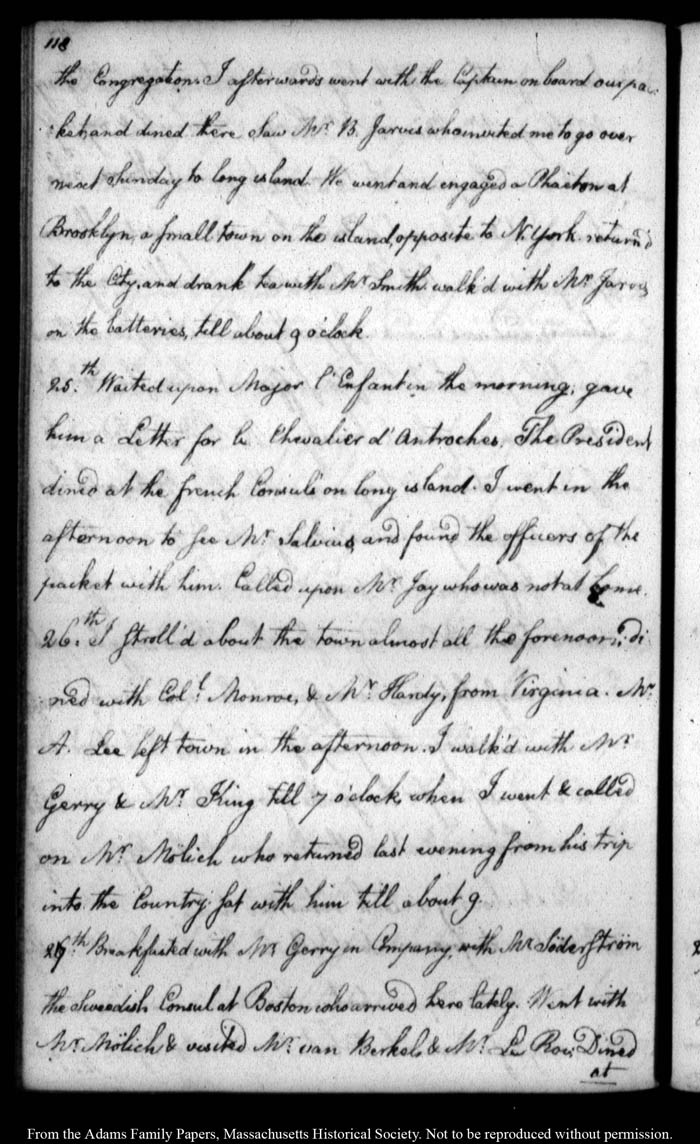 118
the Congregation. I afterwards went with the Captain on board our pac-
:ket, and dined there Saw Mr. B. Jarvis who invited me to go over
next Sunday to long island. We went and engaged a Phaeton at
Brooklyn, a small town on the island, opposite to N. York. return'd
to the City, and drank tea with Mr. Smith. walk'd with Mr. Jarvis
on the batteries, till about 9 o'clock.
25.th Waited upon Major l'Enfant in the morning; gave
him a Letter for le Chevalier d'Antroches. The President
dined at the french Consul's on long island. I went in the
afternoon to see Mr. Salvius, and found the officers of the
packet with him. Called upon Mr. Jay who was not at home.
26.th I stroll'd about the town almost all the forenoon; di-
ned with Col.l Monroe, & Mr. Hardy, from Virginia. Mr.
A. Lee left town in the afternoon. I walk'd with Mr.
Gerry & Mr. King till 7 o'clock, when I went & called
on Mr. Mölich who returned last evening from his trip
into the Country: sat with him till about 9.
27th Breakfasted with Mr. Gerry in Company, with Mr. Söderström
the Sweedish Consul at Boston who arrived here lately. Went with
Mr. Mölich & visited Mr. van Berkel, & Mr. Le Roi. Dined
at
From the Adams Family Papers, Massachusetts Historical Society. Not to be reproduced without permission.